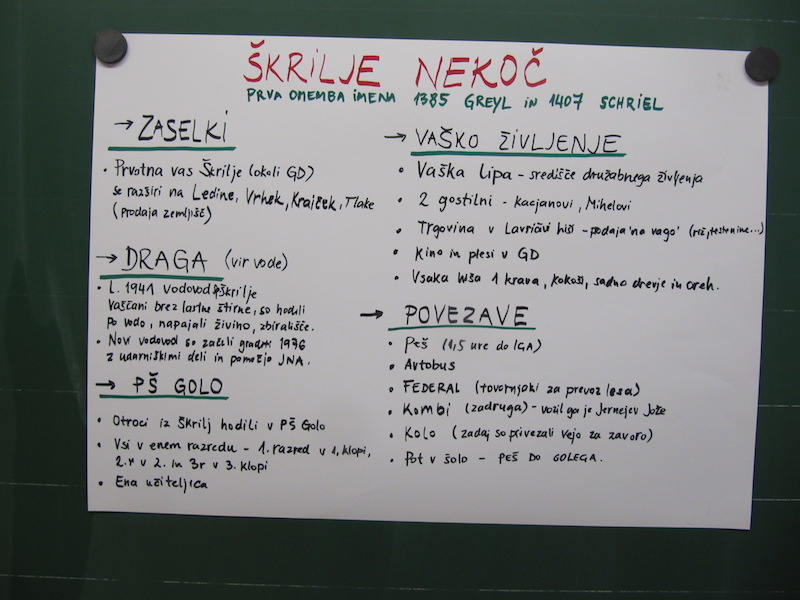 ŠKRILJE NEKOČ
PRVA OMEMBA IMENA 1385 GREYL IN 1407 SCHRIEL
→ ZASELKI
• Prvotna vas Škrilje (okoli GD)
se razširi na Ledine, Vrhek, Krajček, Tlake
(prodaja zemljišč)
→ DRAGA (vir vode)
• L. 1941 vodovod Škrilje
Vaščani brez lastne štirne, so hodili
po vodo, napajali živino, zbirališče.
• Novi vodovod so začeli graditi 1976
z udarniškimi deli in pomočjo JNA.
→ PŠ GOLO
• Otroci iz Škrilj hodili v PŠ Golo
• Vsi v enem razredu - 1. razred v 1. klopi,
2.r v 2. in 3r v 3. klopi
• Ena učiteljica
→ VAŠKO ŽIVLJENJE
• Vaška lipa - središče družabnega življenja
• 2 gostilni - Kacjanovi, Mihelovi
• Trgovina v Lavričevi hiši - podaja 'na vago' (riž, testenine...)
• Kino in plesi v GD
• Vsaka hiša 1 krava, kokoši, sadno drevje in oreh.
→ POVEZAVE
• Peš (1,5 ure do IGA)
• Avtobus
• FEDERAL (tovornjaki za prevoz lesa)
• Kombi (zadruga) - vozil ga je Jernejev Jože
• Kolo (zadaj so privezali vejo za zavoro)
• Pot v šolo - PEŠ DO GOLEGA.